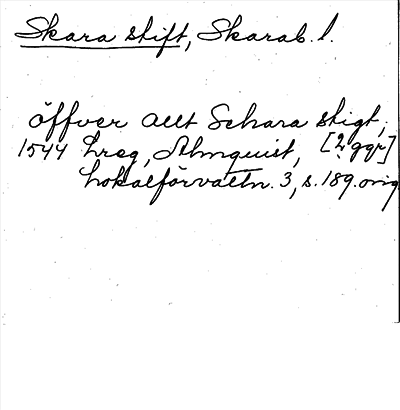 Skara stift, Skarab. l.
öffver allt Schara stigt,
1544 hreg, Almquist, [2 ggr]
Lokalförvaltn. 3, s. 189. orig